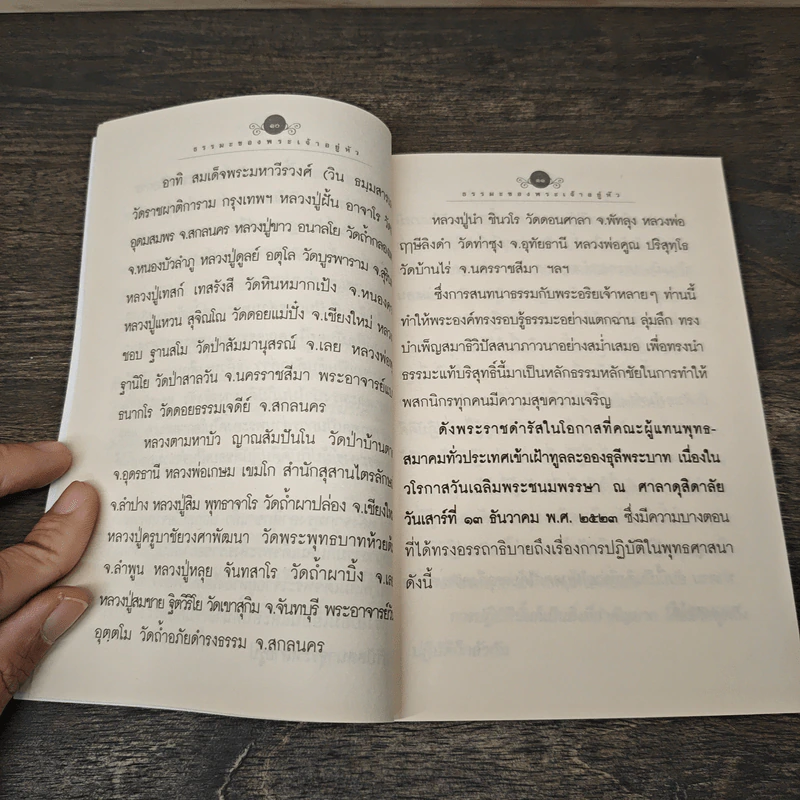 ๑๐
ธรรมะของพระเจ้าอยู่หัว
อาทิ สมเด็จพระมหาวีรวงศ์ (วิน ธมฺมสาร
วัดราชผาติการาม กรุงเทพฯ หลวงปู่ฝั้น อาจาโร
อุดมสมพร จ.สกลนคร หลวงปู่ขาว อนาลโย วัดถ้ำกลอง
จ.หนองบัวลำภู หลวงปู่ดูลย์ อตุโล วัดบูรพาราม จ.สุริ
หลวงปู่เทสก์ เทสรังสี วัดหินหมากเป้ง จ.หนองค
หลวงปู่แหวน สุจิณโณ วัดดอยแม่ปั๋ง จ.เชียงใหม่ หลวง
ชอบ ฐานสโม วัดป่าสัมมานุสรณ์ จ.เลย หลวงพ่อ
ฐานิโย วัดป่าสาลวัน จ.นครราชสีมา พระอาจารย์แบน
ธนากโร วัดดอยธรรมเจดีย์ จ.สกลนคร
หลวงตามหาบัว ญาณสัมปันโน วัดป่าบ้านตา
จ.อุดรธานี หลวงพ่อเกษม เขมโก สำนักสุสานไตรลักษ
จ.ลำปาง หลวงปู่สิม พุทธาจาโร วัดถ้ำผาปล่อง จ.เชียงให
หลวงปู่ครูบาชัยวงศาพัฒนา วัดพระพุทธบาทห้วยต้
จ.ลำพูน หลวงปู่หลุย จันทสาโร วัดถ้ำผาบิ้ง จ.เล
หลวงปู่สมชาย ฐิตวิริโย วัดเขาสุกิม จ.จันทบุรี พระอาจารย์วั
อุตฺตโม วัดถ้ำอภัยดำรงธรรม จ.สกลนคร
๑๑
ธรรมะของพระเจ้าอยู่หัว
หลวงปู่นำ ชินวโร วัดดอนศาลา จ.พัทลุง หลวงพ่อ
ฤาษีลิงดำ วัดท่าซุง จ.อุทัยธานี หลวงพ่อคูณ ปริสุทฺโธ
วัดบ้านไร่ จ.นครราชสีมา ฯลฯ
ซึ่งการสนทนาธรรมกับพระอริยเจ้าหลายๆ ท่านนี้
ทำให้พระองค์ทรงรอบรู้ธรรมะอย่างแตกฉาน ลุ่มลึก ทรง
บำเพ็ญสมาธิวิปัสสนาภาวนาอย่างสม่ำเสมอ เพื่อทรงนำ
ธรรมะแท้บริสุทธิ์นี้มาเป็นหลักธรรมหลักชัยในการทำให้
พสกนิกรทุกคนมีความสุขความเจริญ
ดังพระราชดำรัสในโอกาสที่คณะผู้แทนพุทธ-
สมาคมทั่วประเทศเข้าเฝ้าทูลละอองธุลีพระบาท เนื่องใน
วโรกาสวันเฉลิมพระชนมพรรษา ณ ศาลาดุสิดาลัย
วันเสาร์ที่ ๑๓ ธันวาคม พ.ศ. ๒๕๒๓ ซึ่งมีความบางตอน
ที่ได้ทรงอรรถาธิบายถึงเรื่องการปฏิบัติในพุทธศาสนา
ดังนี้